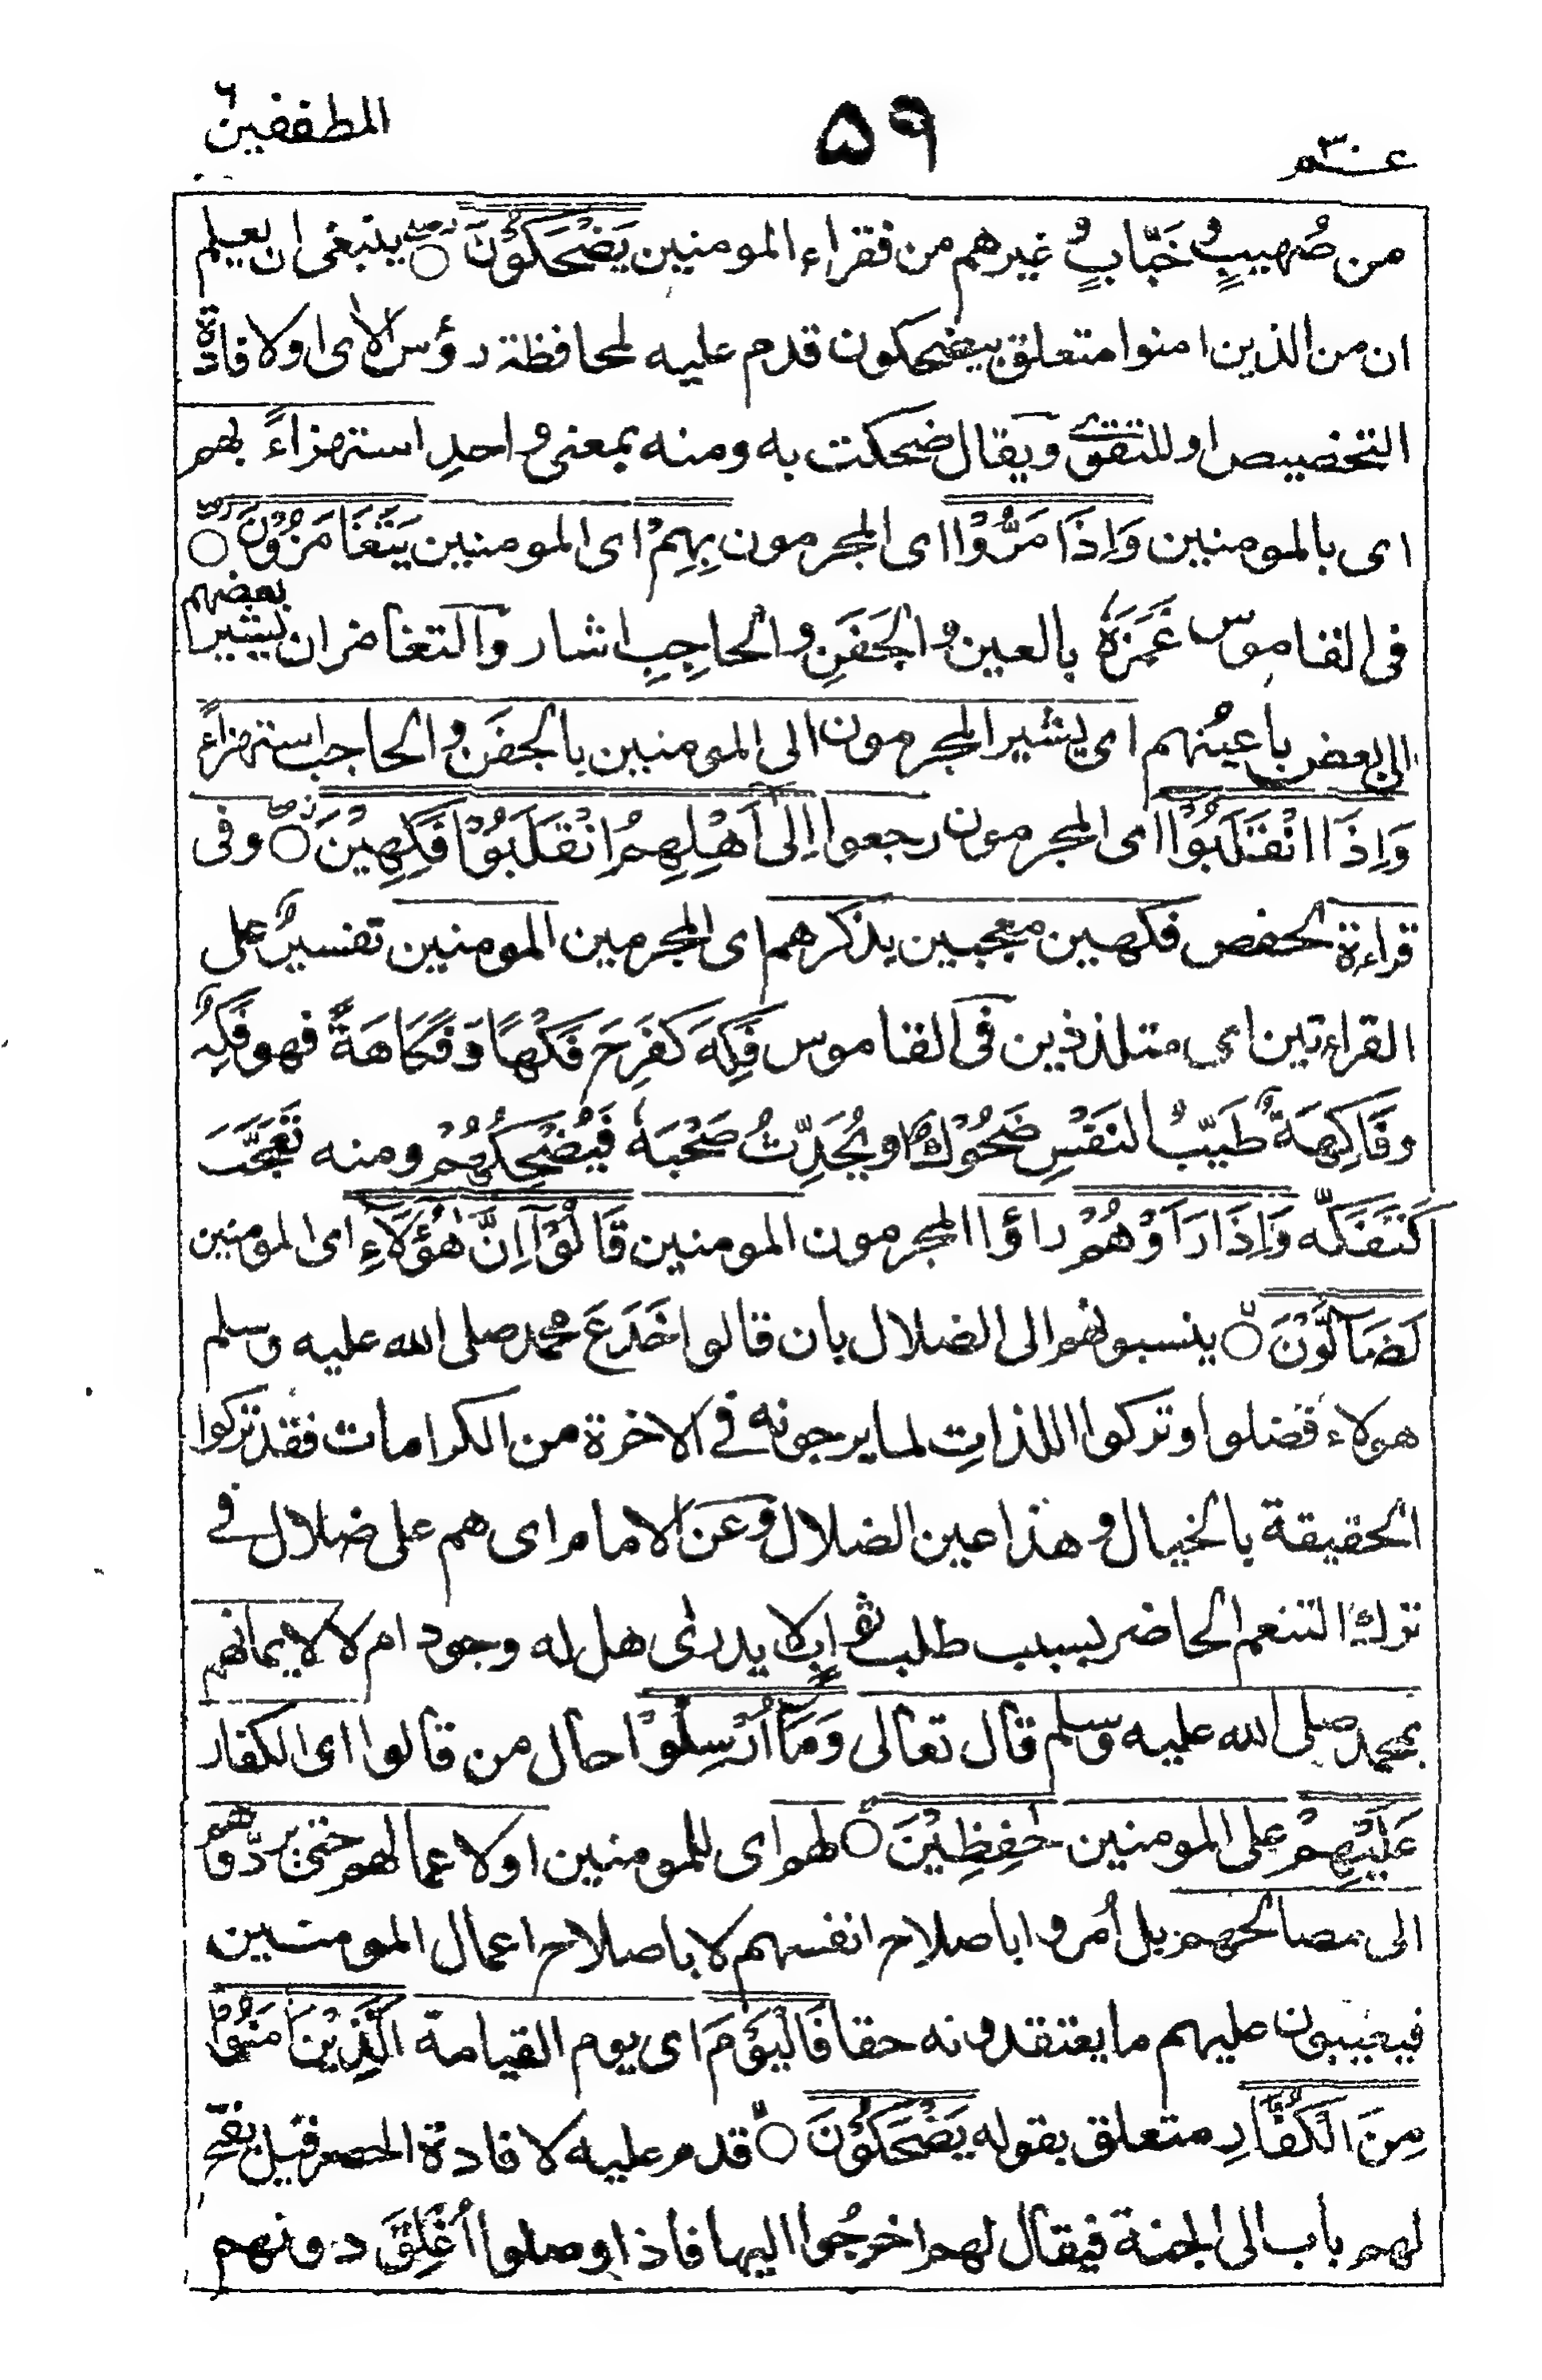 عم ٣٠ ٥٩ المطففين
من صُهيبٍ و خَبّابٍ و غيرهم من فقراء المومنين يَضْحَكُوْنَ ○ ينبغى ان يعلم
ان من الذين امنوا متعلق بيضحكون قدم عليه لمحافظة رؤس الاى او لافادة
التخصيص او للتقوى ويقال ضحكت به ومنه بمعنى واحدٍ استهزاءً بهم
اى بالمومنين وَاِذَا مَرُّوْا اى المجرمون بِهِمْ اى المومنين يَتَغَامَزُوْنَ ○
فى القاموس غَمَزَهٗ بالعين و الجَفَنِ و الحاجِبِ اشار والتغامز ان يشير بعضهم
الى بعض باعيُنهم اى يشير المجرمون الى المومنين بالجفَن و الحاجب استهزاءً
وَاِذَا انْقَلَبُوْا اى المجرمون رجعوا اِلىٰٓ اَهْلِهِمُ انْقَلَبُوْا فٰكِهِيْنَ ○ وفى
قراءة الحفص فكهين معجبين بذكرهم اى المجرمين المومنين تفسيرٌ على
القراءتين اى متلذذين فى القاموس فَكِهَ كَفَرِحَ فَكَهًا وَفَكَاهَةً فهو فَكِهٌ
وفَاكِهَةٌ طَيِّبُ النَفْسِ ضَحُوْكٌ او يُحَدِّثُ صَحْبَهٗ فَيُضْحِكُهُمْ ومنه تَعَجَّبَ
كَتَفَكَّه وَاِذَا رَاَوْهُمْ راؤا المجرمون المومنين قَالُوْٓا اِنَّ هٰٓؤُلَآءِ اى المومنين
لَضَآلُّوْنَ ○ ينسبونهم الى الضلال بان قالوا خَدَعَ محمد صلى الله عليه وسلم
هولاء فضلوا وتركوا اللذاتِ لما يرجونه فى الاخرة من الكرامات فقد تركوا
الحقيقة بالخيال و هذا عين الضلال وعن الامام اى هم على ضلال فى
ترك التنعم الحاضر بسبب طلب ثواب لا يدرى هل له وجود ام لا لايمانهم
بمحمد صلى الله عليه وسلم قال تعالى وَمَآ اُرْسِلُوْا حال من قالوا اى الكفار
عَلَيْهِمْ على المومنين حٰفِظِيْنَ ○ لهم اى للمومنين او لاعمالهم حتى يردّوهم
الى مصالحهم بل اُمروا باصلاح انفسهم لا باصلاح اعمال المومنين
فيعيبون عليهم ما يعتقدونه حقا فَالْيَوْمَ اى يوم القيامة الَّذِيْنَ اٰمَنُوْا
مِنَ الْكُفَّارِ متعلق بقوله يَضْحَكُوْنَ ○ قدم عليه لافادة الحصر قيل يفتح
لهم باب الى الجنة فيقال لهم اخرجُوا اليها فاذا وصلوا اُغلِقَ دونهم